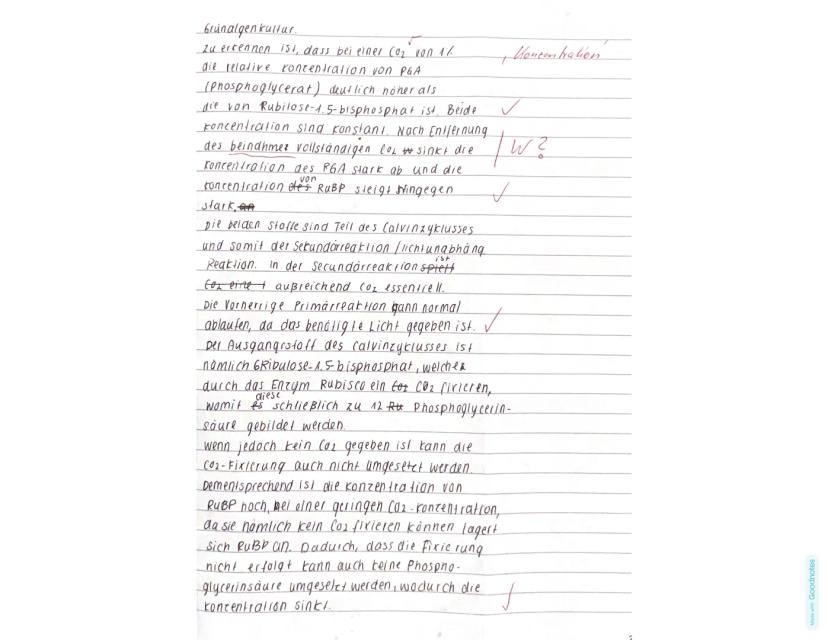 Grünalgenkultur.
zu erkennen ist, dass bei einer CO2 von 1% , Konzentration
die relative Koncentration von PGA
(Phosphoglycerat) deutlich höher als
die von Rubilose-1.5-bisphosphat ist. Beide
Koncentration sind konstant. Nach Entfernung
des beindhmer vollständigen CO2 sinkt die W?
Koncentration des PGA stark ab und die
Koncentration des von RuBP steigt hingegen
stark. an
Die beiden Stoffe sind Teil des Calvinzyklusses
und somit der Sekundärreaktion / lichtunabhäng
Reaktion. In der Secundärreaktion spielt ist
CO2 eine außreichend CO2 essentiell.
Die Vorherrige Primärreaktion kann normal
ablaufen, da das benötigte Licht gegeben ist.
Der Ausgangstoff des Calvinzyklusses ist
nämlich 6Ribulose-1.5-bisphosphat, welcher
durch das Enzym Rubisco ein CO2 CO2 fixieren,
womit es diese schließlich zu 12 Ru Phosphoglycerin-
säure gebildet werden.
wenn jedoch kein CO2 gegeben ist kann die
CO2-Fixierung auch nicht umgesetzt werden.
Dementsprechend ist die Konzentration von
RuBP hoch, bei einer geringen CO2-Koncentration,
da sie nämlich kein CO2 fixieren können lagert
sich RuBP an. Dadurch, dass die Fixierung
nicht erfolgt kann auch keine Phospho-
glycerinsäure umgesetzt werden, wodurch die
Koncentration sinkt.
Made with Goodnotes